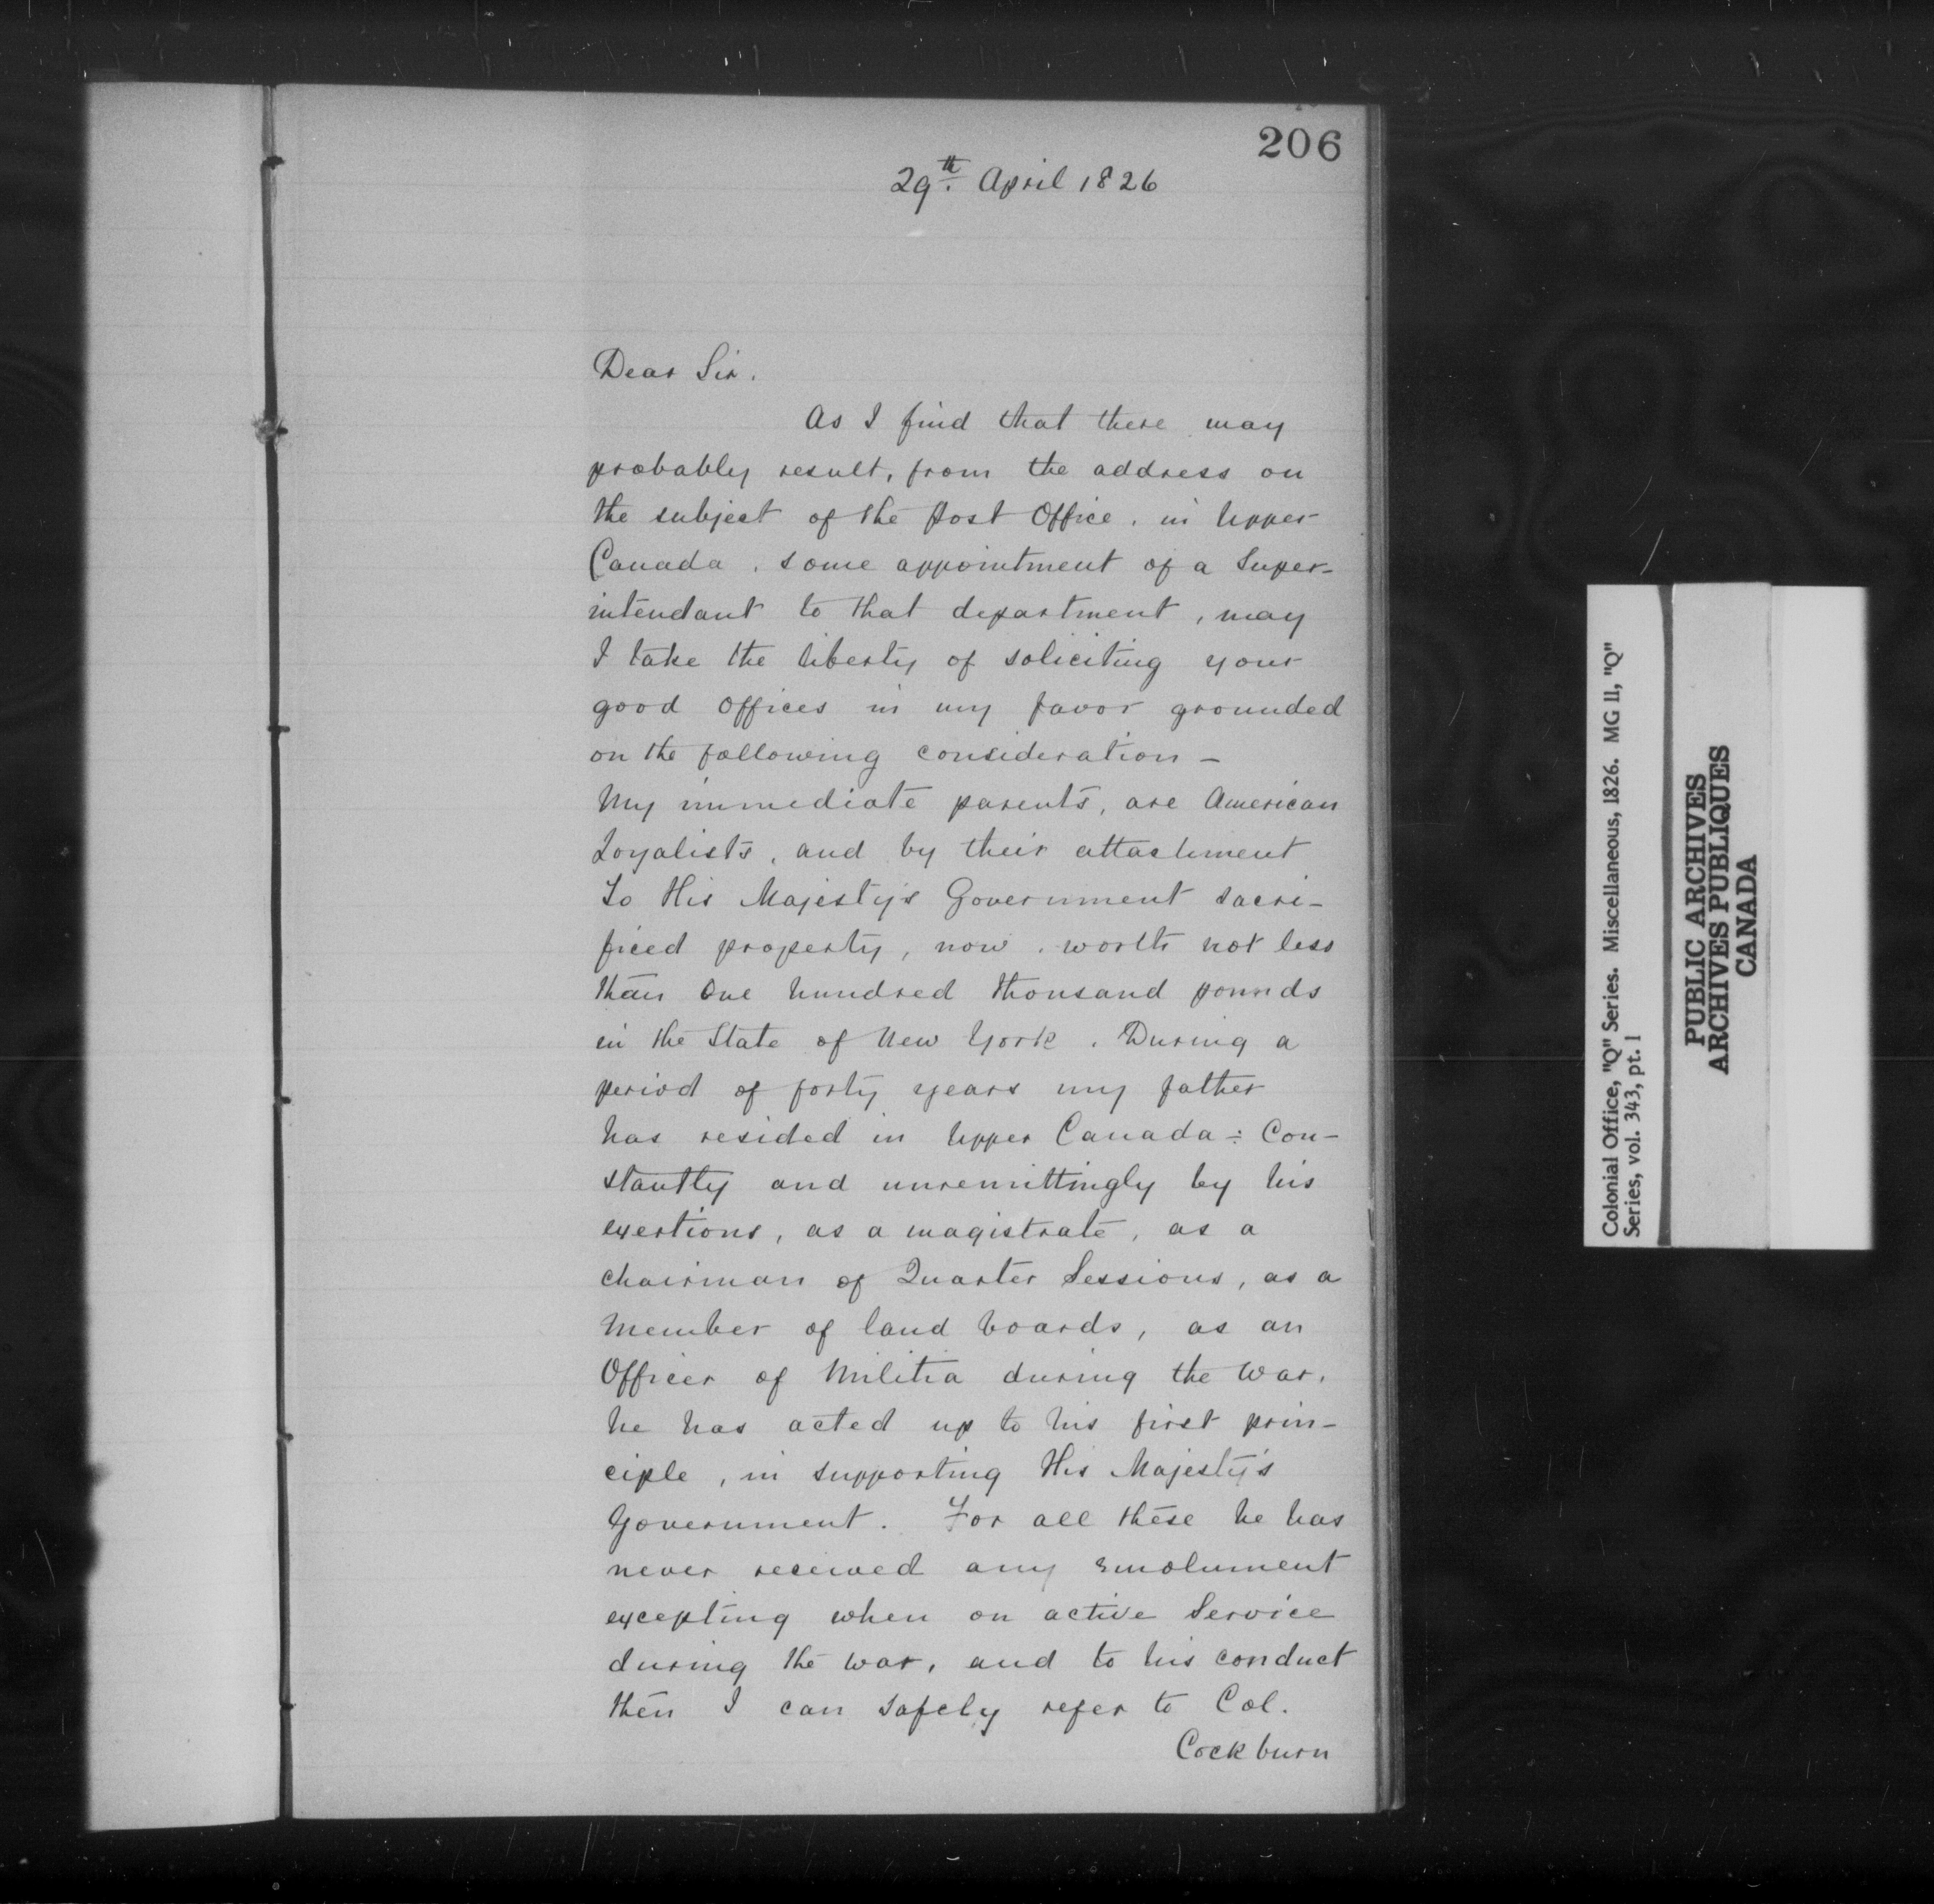 206
29th. April 1826
Dear Sir.
As I find that there may
probably result, from the address on
the subject of the Post Office, in Upper
Canada, some appointment of a Super-
intendant to that department, may
I take the liberty of soliciting your
good offices in my favor grounded
on the following consideration -
My immediate parents, are American
Loyalists, and by their attachment
to His Majesty's Government sacri-
ficed property, now, worth not less
than One hundred thousand pounds
in the State of New York. During a
period of forty years my father
has resided in Upper Canada - Con-
stantly and unremittingly by his
exertions, as a magistrate, as a
chairman of Quarter Sessions, as a
Member of land boards, as an
Officer of Militia during the War,
he has acted up to his first prin-
ciple, in supporting His Majesty's
Government. For all these he has
never received any emolument
excepting when on active Service
during the war, and to his conduct
then I can safely refer to Col.
Cockburn
Colonial Office, "Q" Series. Miscellaneous, 1826. MG 11, "Q"
Series, vol. 343, pt. 1
PUBLIC ARCHIVES
ARCHIVES PUBLIQUES
CANADA